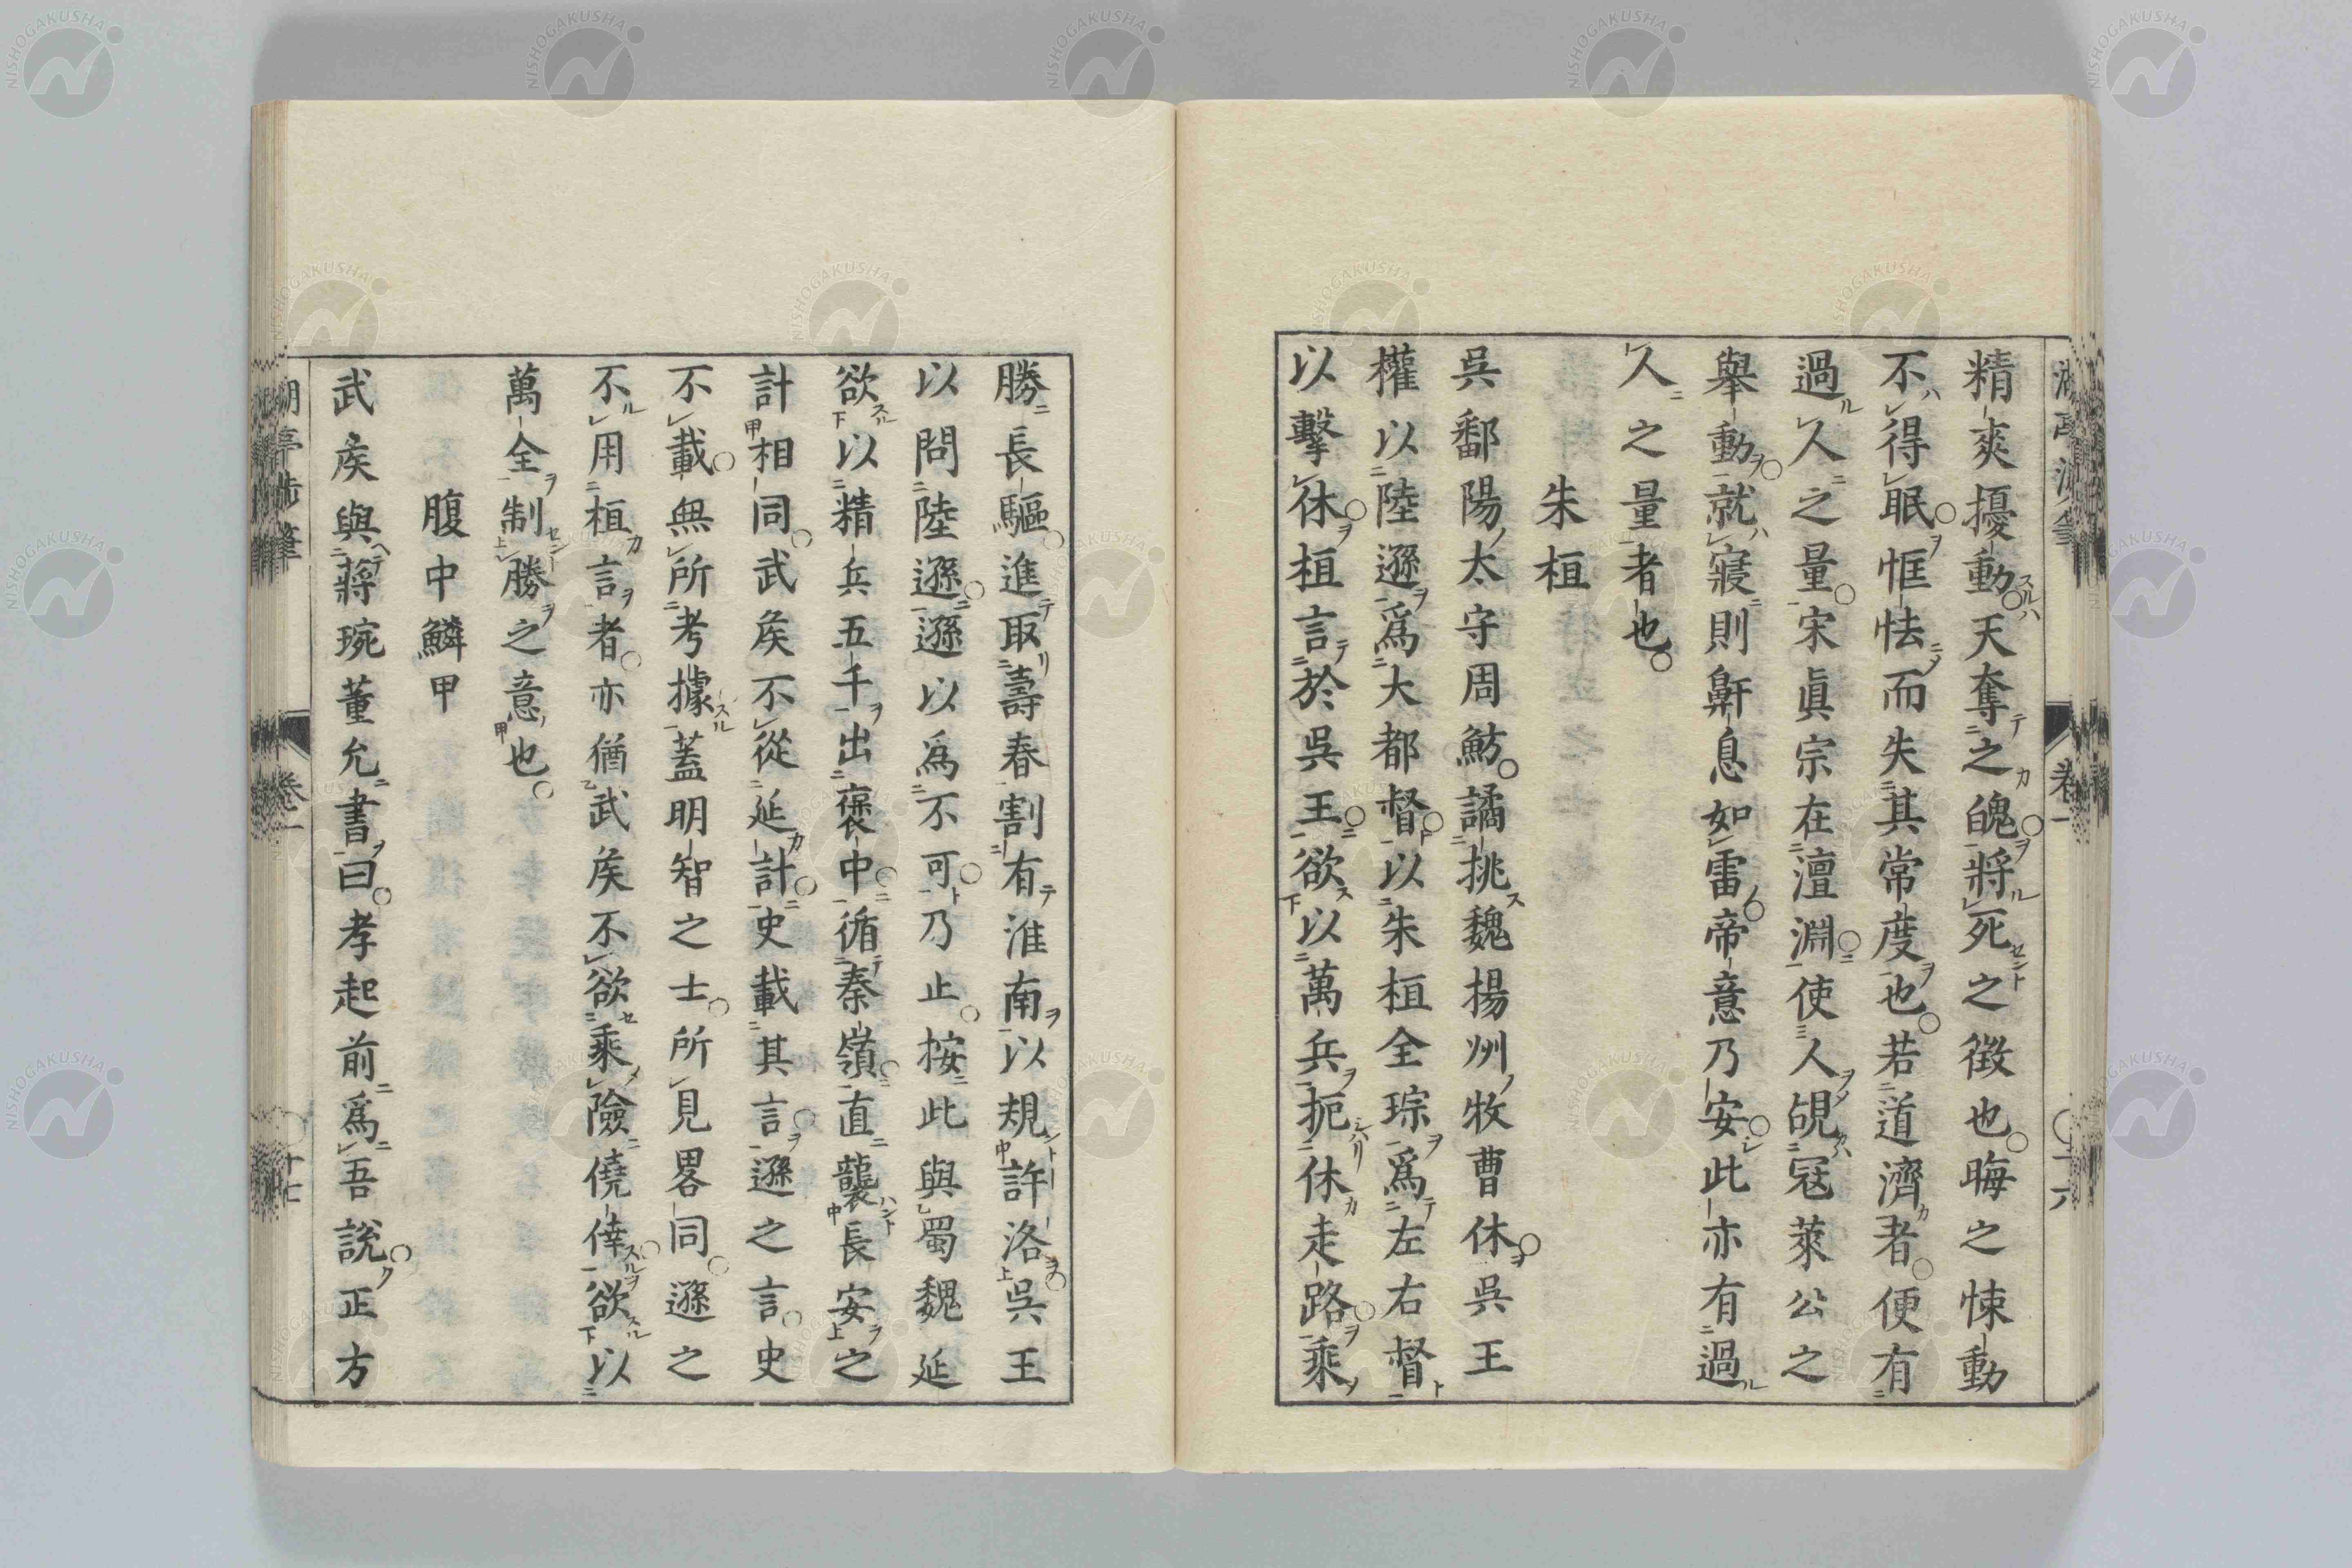 精爽擾動天奪之魄將死之徴也晦之悚動
不得眠恇怯而失其常度也若道濟者便有
過人之量宋眞宗在澶淵使人覘冦萊公之
舉動就寢則鼾息如雷帝意乃安此亦有過
人之量者也
朱桓
吳鄱陽太守周魴譎挑魏揚州牧曹休吳王
權以陸遜爲大都督以朱桓全琮爲左右督
以擊休桓言於吳王欲以萬兵扼休走路乘
勝長驅進取壽春割有淮南以規許洛吳王
以問陸遜遜以爲不可乃止按此與蜀魏延
欲以精兵五千出褒中循秦嶺直襲長安之
計相同武矦不從延計史載其言遜之言史
不載無所考據蓋明智之士所見畧同遜之
不用桓言者亦猶武矦不欲乘險僥倖欲以
萬全制勝之意也
腹中鱗甲
武矦與蔣琬董允書曰孝起前爲吾說正方
卷一
卷一
NISHOGAKUSHA